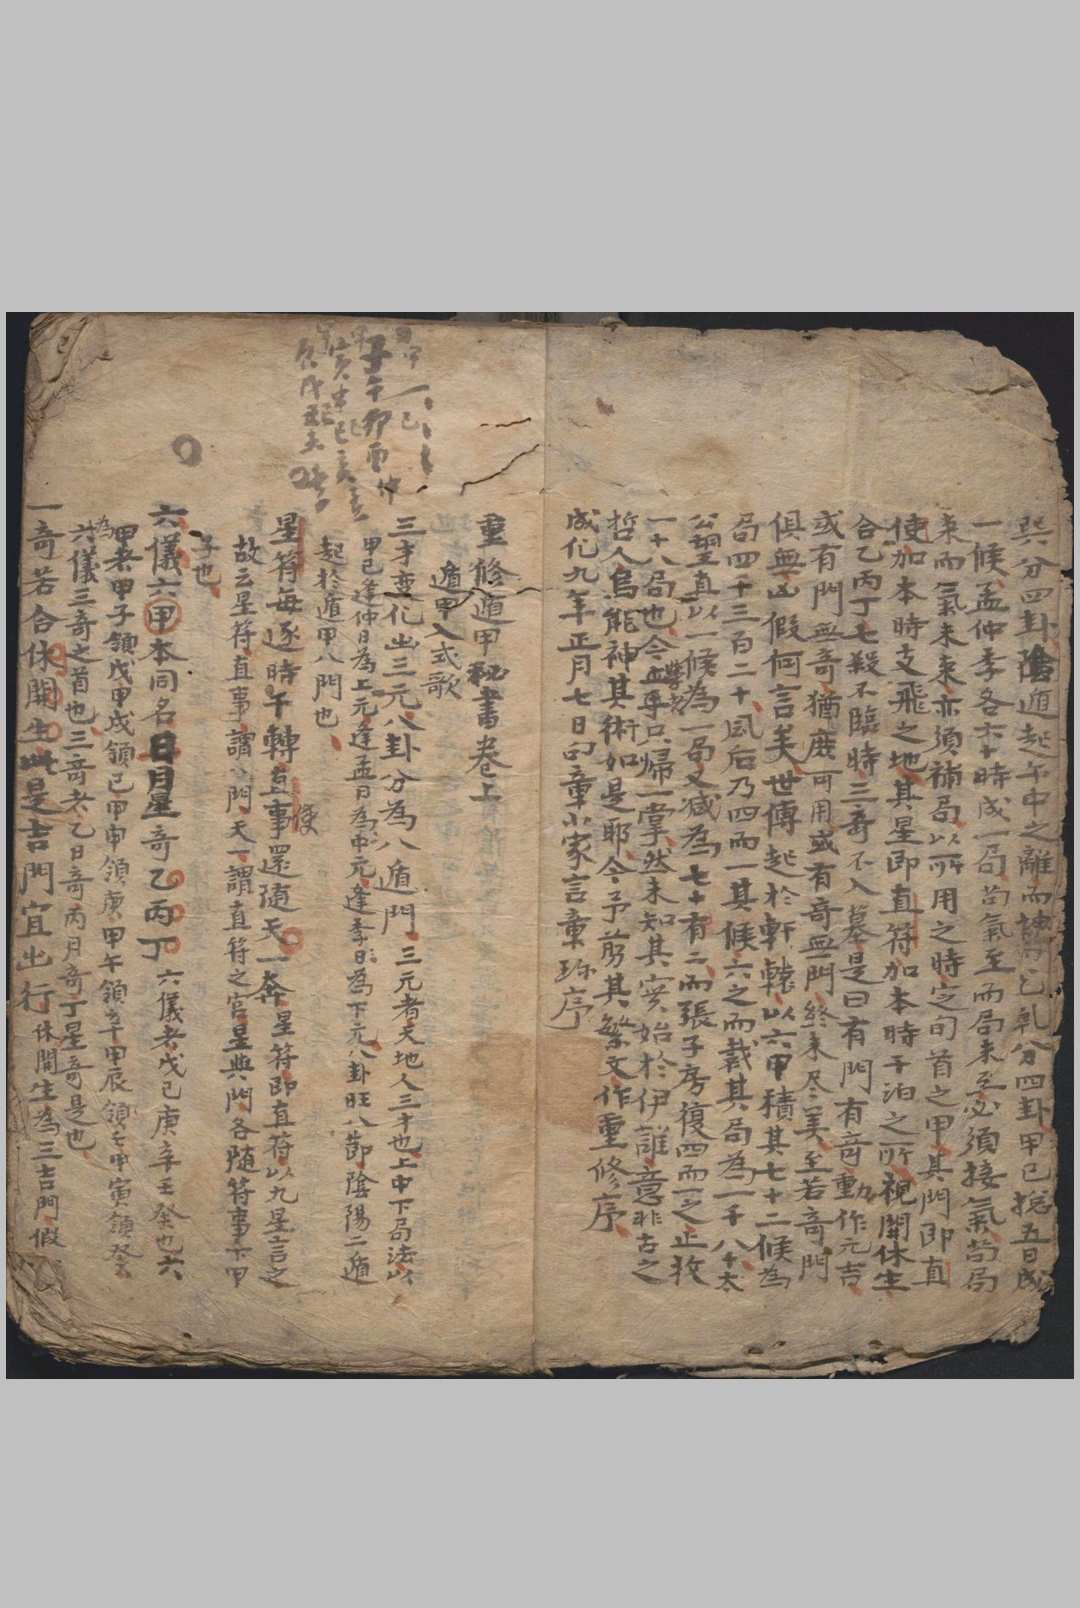 巽分四卦陰遁起午中之離而
乾分四卦甲己总五日成
一候孟仲季各六十時成一局苟氣至而局未至必須接氣苟局
来而氣未来亦須補局以所用之時之旬首之甲其門即直
使加本時支飛之地其星即直符加本時干泊之所視開休生
合乙丙丁七殺不臨時三奇不入墓是曰有門有奇動作元吉
或有門無奇猶庶可用或有奇無門終未尽美至若奇門
俱無凶假何言美世傳起於軒轅以六甲積其七十二候為
局四千三百二十風后乃四而一其候六之而裁其局為一千八十太
公望直以一候為一局又减為七十有二而張子房復四而一之正救
一十八局也今無學者只歸一掌然未知其实始於伊誰意非古之
哲人烏能神其術如是耶今予剪其繁文作重修序
成化九年正月七日句章小家言章珎序
重修遁甲秘書卷上
遁甲入式歌
三才变化出三元八卦分為八遁門 三元者天地人三才也上中下局法以
甲己逢仲日為上元逢孟日為中元逢季日為下元八卦旺八節陰陽二遁
起於遁甲八門也
星符每逐時干轉直事還隨天一奔 星符即直符以九星言之
使
故云星符直事謂八門天一謂直符之宫星與門各随符事六甲
子也
六儀六甲本同名日月星奇乙丙丁 六儀者戊己庚辛壬癸也六
甲者甲子領戊甲戌領己甲申領庚甲午領辛甲辰領壬甲寅領癸
為
六儀三奇之首也三奇者乙日奇丙月奇丁星奇是也
一奇若合休開生此是吉門宜出行 休開生為三吉門假